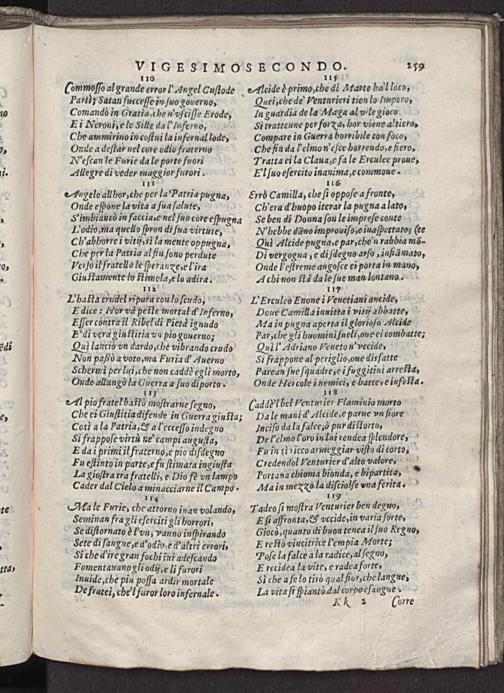 VIGESIMOSECONDO. 259
110
Commosso al grande error l'Angel Custode
Partì; Satan successe in suo governo,
Comandò in Gratia, che n'uscisse Erode,
E i Neroni, e le Sille da l'Inferno,
Che ammirino in costui la infernal lode,
Onde a destar nel core odio fraterno
N'escan le Furie da le porte fuori
Allegre di veder maggior furori.
111
Angelo allhor, che per la Patria pugna,
Onde espone la vita a sua salute,
S'imbiancò in faccia, e nel suo core espugna
L'odio, ma quello spron di sua virtute,
Ch'abhorre i vitij, sì la mente oppugna,
Che per la Patria al fin sono perdute
Verso il fratello le speranze, e l'ira
Giustamente lo stimola, e lo adira.
112
L'hasta crudel ripara con lo scudo,
E dice: Hor và peste mortal d'Inferno,
Esser contra il Ribel di Pietà ignudo
E' di vera giustitia un pio governo;
Qui lanciò un dardo, che vibrando crudo
Non passò a voto, ma Furia d'Averno
Schermì per lui, che non caddè egli morto,
Onde allungò la Guerra a suo diporto.
113
Al pio fratel bastò mostrarne segno,
Che ei Giustitia difende in Guerra giusta;
Così a la Patria, & a l'eccesso indegno
Si frappose virtù ne' campi augusta,
E da i primi il fraterno, e pio disdegno
Fu estinto in parte, e fu stimata ingiusta
La giostra tra fratelli, e Dio fè un lampo
Cader dal Cielo a minacciarne il Campo.
114
Ma le Furie, che attorno ivan volando,
Seminan fra gli eserciti gli horrori,
Se distornato è l'un, vanno inspirando
Sete di sangue, e d'odio, e d'altri errori,
Sì che d'ire gran fochi ivi adescando
Fomentavano gli odij, e li furori
Invide, che più possa ardir mortale
De frateì, che'l furor loro infernale.
115
Alcide è primo, che di Marte ha'l loco,
Quei, che de' Venturieri tien lo Impero,
In guardia de la Maga al vile gioco
Si trattenne per forza, hor viene altiero,
Compare in Guerra horribile con foco,
Che fin da l'elmo n'esce horrendo, e fiero,
Tratta ei la Clava, e fa le Erculee prove,
E'l suo esercito inanima, e commove.
116
Errò Camilla, che si oppose a fronte,
Ch'era d'huopo iterar la pugna a lato,
Se ben di Donna son le imprese conte
N'hebbe dãno improviso, e inaspettato; (te
Quì Alcide pugna, e par, che'n rabbia mõ-
Di vergogna, e di sdegno arso, infiãmato,
Onde l'estreme angosce ei porta in mano,
A chi non stà da le sue man lontano.
117
L'Erculeo Enone i Venetiani ancide,
Dove Camilla invitta i vitij abbatte,
Ma in pugna aperta il glorioso Alcide
Par, che gli huomini sveli, ove ei combatte;
Quì l'Adriano Veneto n'uccide,
Si frappone al periglio, ove disfatte
Parean sue squadre, e i fuggitivi arresta,
Onde Hercole i nemici, e batte, e infesta.
118
Cadde l'bel Venturier Flaminio morto
Da le mani d'Alcide, e parve un fiore
Inciso da la falce, ò pur distorto,
De l'elmo l'oro in lui rendea splendore,
Fu in sì ricco armeggiar visto di corto,
Credendol Venturier d'alto valore,
Portana chioma bionda, e bipartita,
Ma in mezzo la disciolse una ferita.
119
Tadeo si mostra Venturier ben degno,
E si affronta, & uccide, in varia sorte,
Giocò, quanto di buon tenea il suo Regno,
E restò vincitrice l'empia Morte;
Pose la falce a la radice, al segno,
E recidea la vite, e radea forte,
Sì che a se lo tirò qual fior, che langue,
La vita si spiantò dal corpo esangue.
Kk 2 Corre